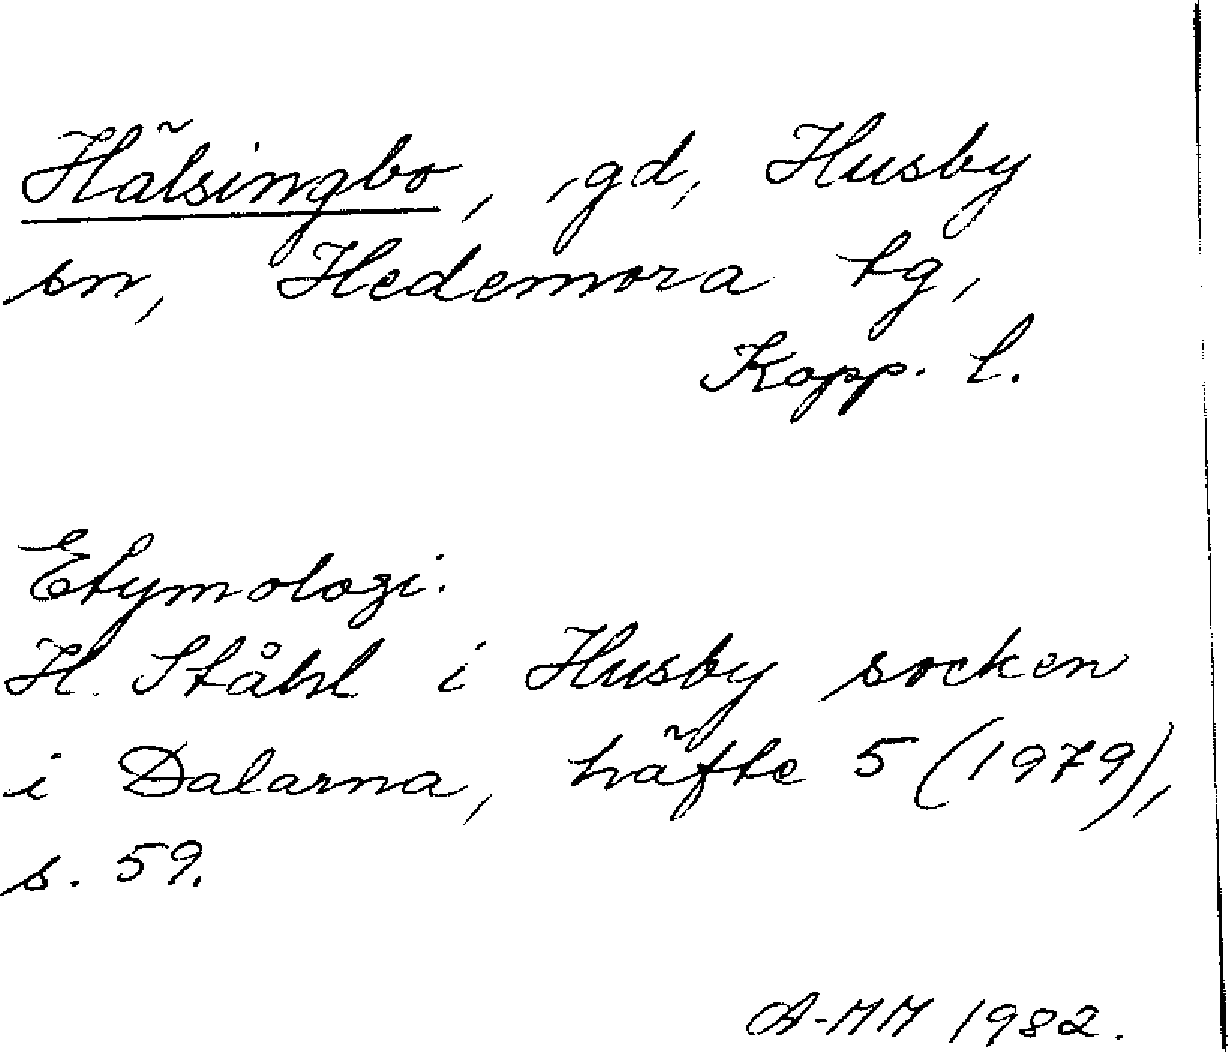 Hälsingbo, gd, Husby
sn, Hedemora tg,
Kopp. l.
Etymologi:
H. Ståhl i Husby socken
i Dalarna, häfte 5 (1979),
s. 59.
A-MM 1982.